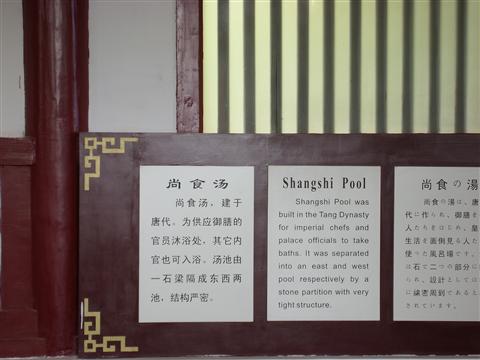 尚食汤
尚食汤，建于
唐代。为供应御膳的
官员沐浴处，其它内
官也可入浴。汤池由
一石梁隔成东西两
池，结构严密。
Shangshi Pool
Shangshi Pool was
built in the Tang Dynasty
for imperial chefs and
palace officials to take
baths. It was separated
into an east and west
pool respectively by a
stone partition with very
tight structure.
尚食の湯
尚食の湯は、唐
代に作られ、御膳を
人たちをはじめ、皇
生活を面倒見る人た
使った風呂場です。
は石で二つの部分に
られ、設計としては
に緻密周到であると
されています。